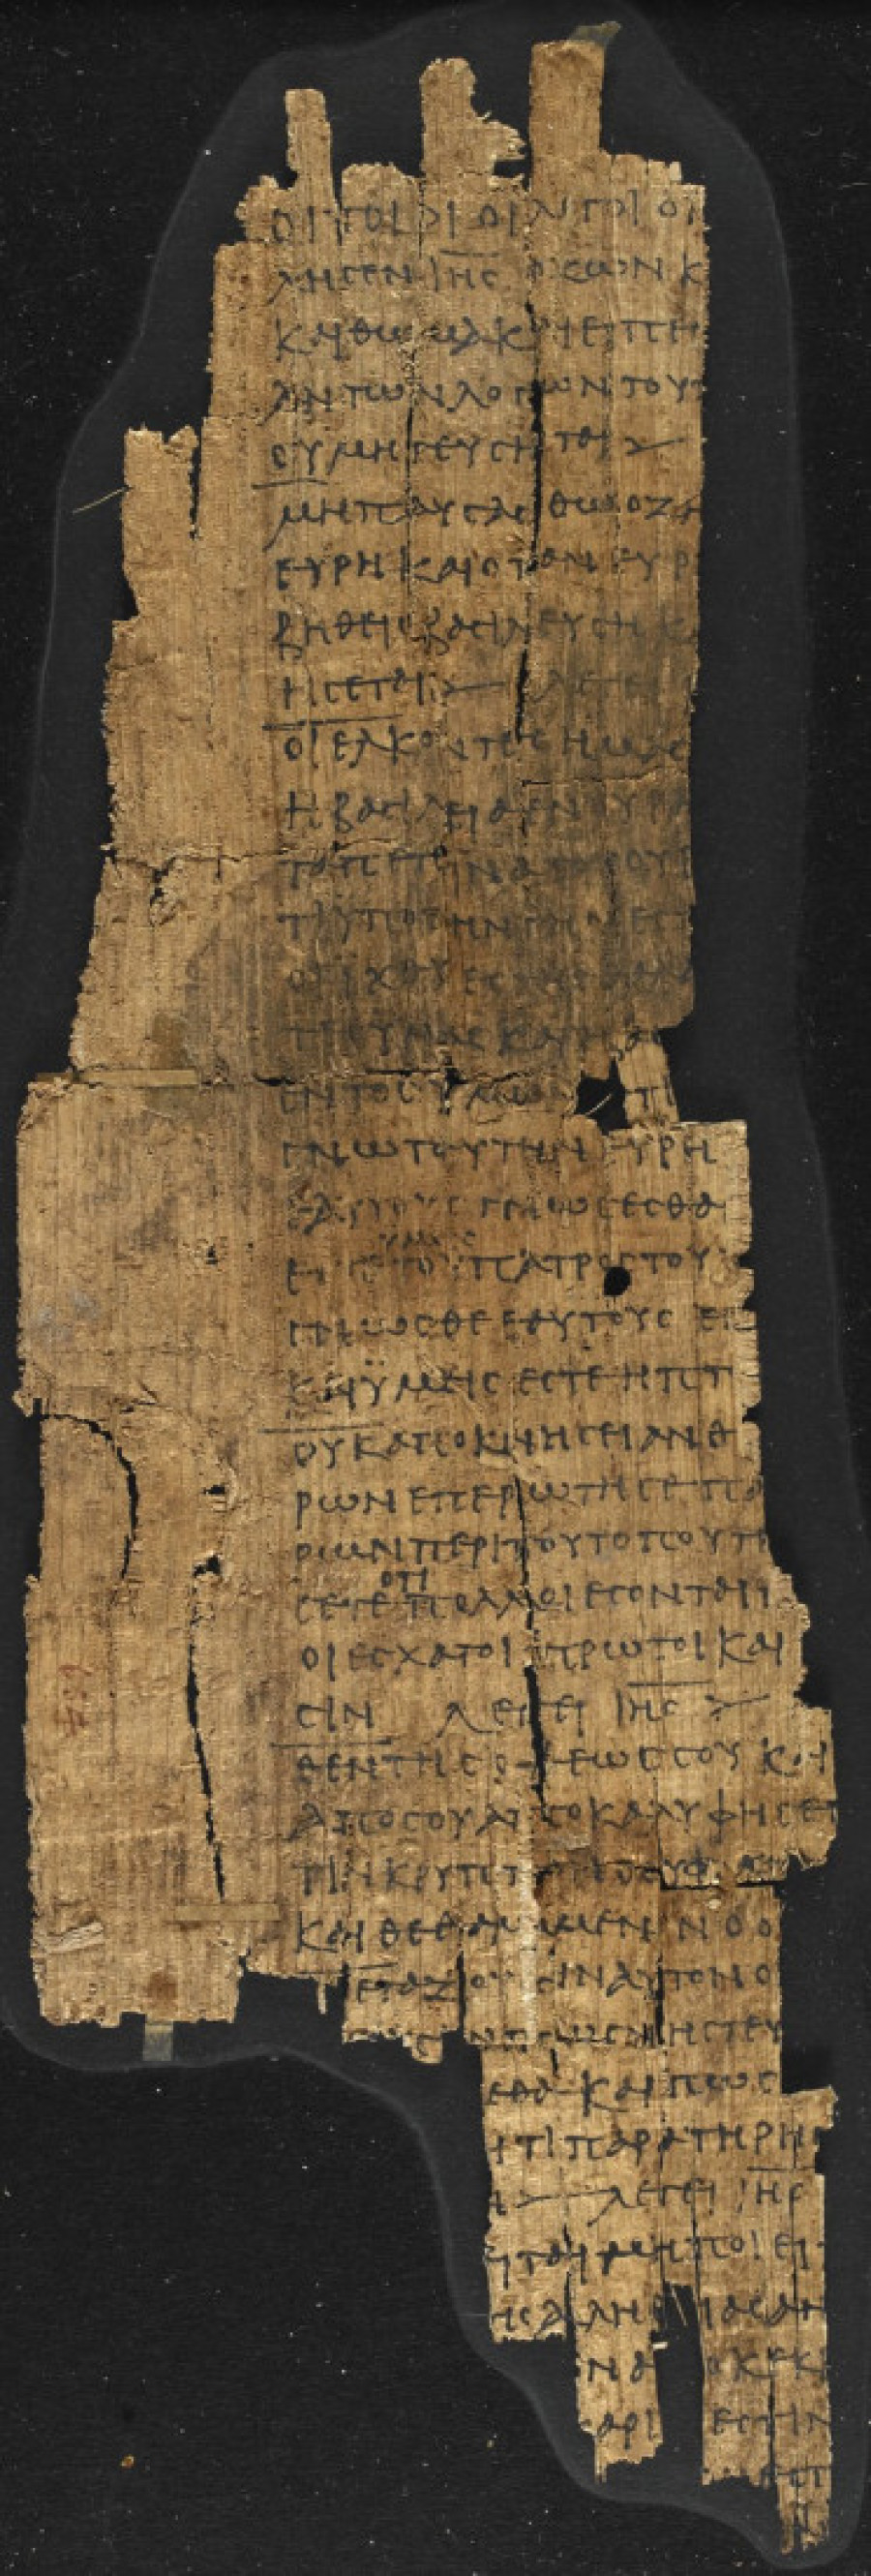 ΟΙΤΟΙΟΙΟΙΛΟΓΟΙΟΙ
ΛΗΣΕΝΙΗΣΟΖΩΝΚ
ΚΑΙΘΩΜΑΚΑΙΕΙΠΕΝ
ΑΝΤΩΝΛΟΓΩΝΤΟΥΤ
ΟΥΜΗΓΕΥΣΗΤΑΙ
ΜΗΠΑΥΣΑΣΘΩΟΖΗ
ΕΥΡΗΚΑΙΟΤΑΝΕΥΡ
ΒΗΘΕΙΣΒΑΣΙΛΕΥΣΗΚΑ
ΗΣΕΤΑΙ ΛΕΓΕΙ
ΟΙΕΛΚΟΝΤΕΣΗΜΑΣ
ΗΒΑΣΙΛΕΙΑΕΝΟΥΡΑ
ΤΑΠΕΤΕΙΝΑΤΟΥΟΥΡ
ΤΙΫΠΟΤΗΝΓΗΝΕΣΤ
ΟΙΙΧΘΥΕΣΤΗΣΘΑΛΑ
ΤΕΣΥΜΑΣΚΑΙΗΒΑΣ
ΕΝΤΟΣΥΜΩΝ ΤΙ
ΓΝΩΤΑΥΤΗΝΕΥΡΗ
ΕΑΥΤΟΥΣΓΝΩΣΕΣΘΑ
ΥΜΕΙΣ
ΕΣΤΕΤΟΥΠΑΤΡΟΣΤΟΥ
ΓΝΩΣΘΕΕΑΥΤΟΥΣΕΝ
ΚΑΙΫΜΕΙΣΕΣΤΕΗΠΤ
ΟΥΚΑΠΟΚΝΗΣΕΙΑΝΘ
ΡΩΝΕΠΕΡΩΤΗΣΕΠΑ
ΡΩΝΠΕΡΙΤΟΥΤΟΠΟΥΤΗ
ΟΤΙ
ΣΕΤΕΠΟΛΛΟΙΕΣΟΝΤΑΙΠ
ΟΙΕΣΧΑΤΟΙΠΡΩΤΟΙΚΑΙ
ΣΙΝ ΛΕΓΕΙΙΗΣ
ΘΕΝΤΗΣΟΨΕΩΣΣΟΥΚΑΙ
ΑΠΟΣΟΥΑΠΟΚΑΛΥΦΗΣΕΤ
ΤΙΝΚΡΥΠΤΟΝΟΟΥΦΑΝΕ
ΚΑΙΘΕΘΑΜΜΕΝΟΝΟΟ
ΕΤΑΖΟΥΣΙΝΑΥΤΟΝΟ
ΓΟΥΣΙΝΠΩΣΝΗΣΤΕΥ
ΕΘΑΚΑΙΠΩΣ
ΑΙΤΙΠΑΡΑΤΗΡΗΣ
Ν ΛΕΓΕΙΙΗΣ
ΕΙΤΑΙΜΗΠΟΙΕΙ
ΗΣΑΛΗΘΕΙΑΣΑΝ
ΝΑΠΟΚΕΚ
ΑΡΙ ΕΣΤΙΝ
ΕΣΤ
Ν